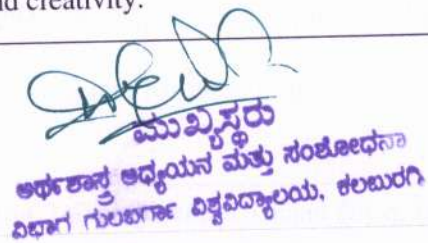 nd creativity.
ಮುಖ್ಯಸ್ಥರು
ಅರ್ಥಶಾಸ್ತ್ರ ಅಧ್ಯಯನ ಮತ್ತು ಸಂಶೋಧನಾ
ವಿಭಾಗ ಗುಲಬರ್ಗಾ ವಿಶ್ವವಿದ್ಯಾಲಯ, ಕಲಬುರಗಿ